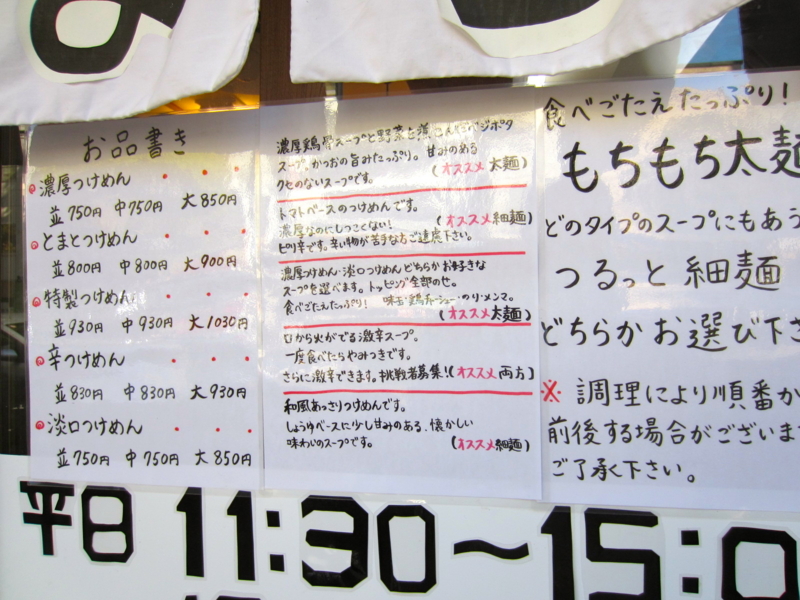 お品書き
濃厚つけめん
並750円 中750円 大850円
とまとつけめん
並800円 中800円 大900円
特製つけめん
並930円 中930円 大1030円
辛つけめん
並830円 中830円 大930円
淡口つけめん
並750円 中750円 大850円
濃厚鶏骨スープと野菜を煮こんだベジポタ
スープ。かつおの旨みたっぷり。甘みのある
クセのないスープです。(オススメ 太麺)
トマトベースのつけめんです。
濃厚なのにしつこくない! (オススメ細麺)
ピリ辛です。辛い物が苦手な方ご遠慮下さい。
濃厚つけめん・淡口つけめんどちらかお好きな
スープを選べます。トッピング全部のせ。
食べごたえたっぷり! 味玉・鶏チャーシュー・のり・メンマ。
(オススメ太麺)
口から火がでる激辛スープ。
一度食べたらやみつきです。
さらに激辛できます。挑戦者募集!(オススメ 両方)
和風あっさりつけめんです。
しょうゆベースに少し甘みのある、懐かしい
味わいのスープです。(オススメ細麺)
食べごたえたっぷり!
もちもち太麺
どのタイプのスープにもあう
つるっと 細麺
どちらかお選び下さ
※ 調理により順番が
前後する場合がございま
ご了承下さい。
平日 11:30〜15:0